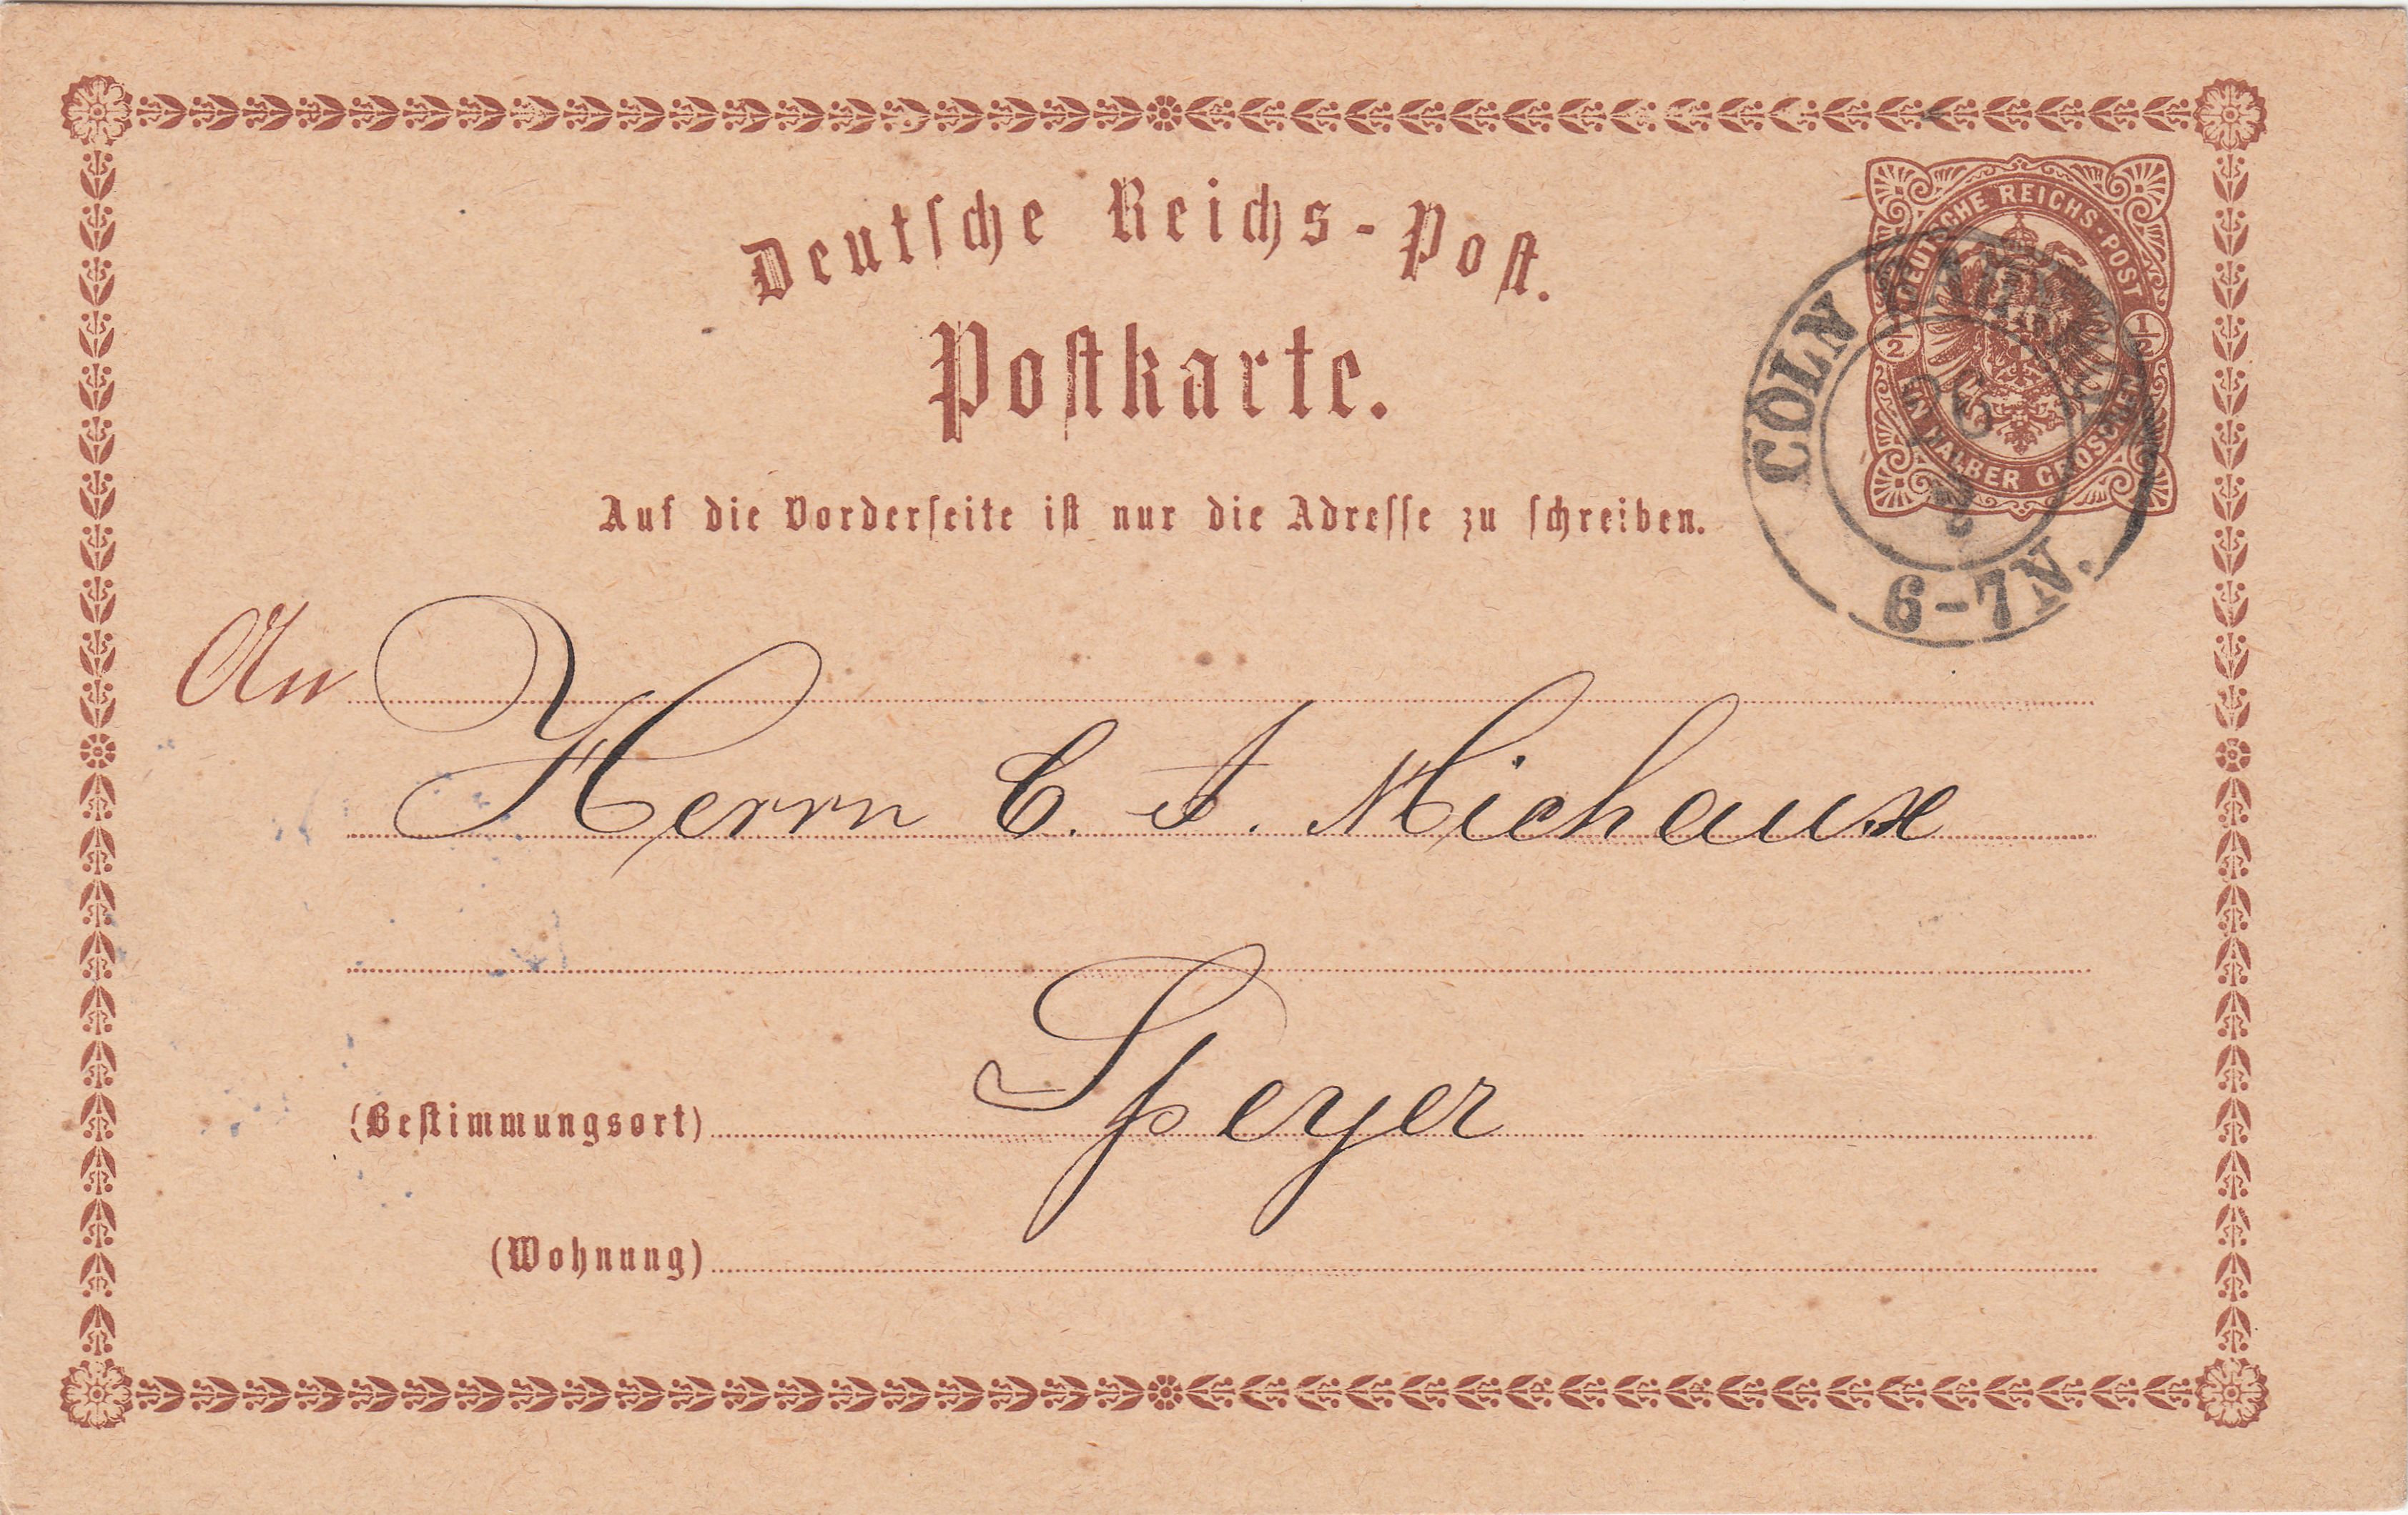 Deutsche Reichs-Post.
Postkarte.
DEUTSCHE REICHS-POST
1/2 1/2
EIN HALBER GROSCHEN
CÖLN
26
2
6-7N.
Auf die Vorderseite ist nur die Adresse zu schreiben.
An
Herrn C. A. Michaux
(Bestimmungsort) Speyer
(Wohnung)